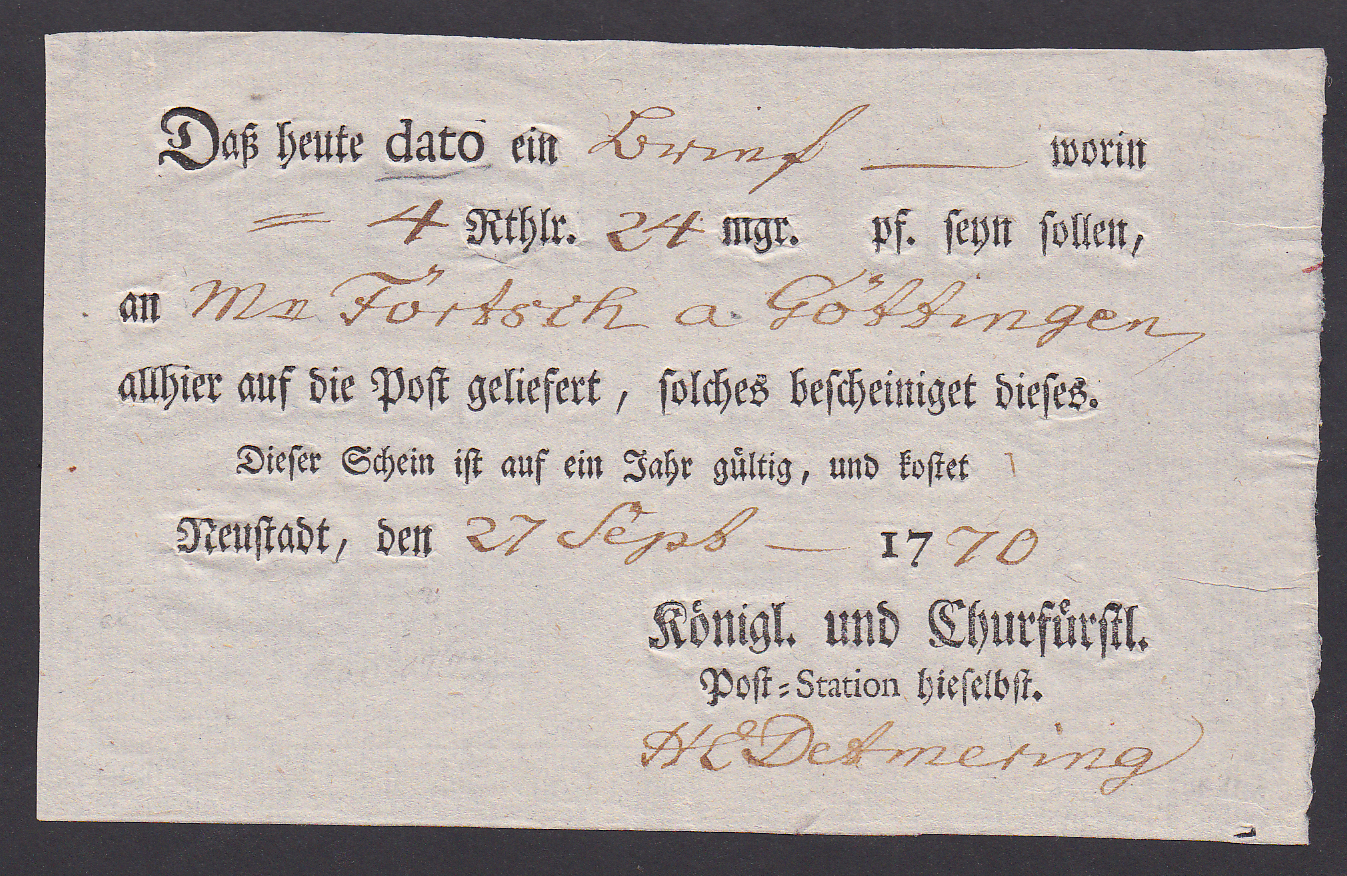 Daß heute dato ein Brief — worin
= 4 Rthlr. 24 mgr. pf. seyn sollen,
an Mr Förtsch a Göttingen,
allhier auf die Post geliefert, solches bescheiniget dieses.
Dieser Schein ist auf ein Jahr gültig, und kostet
Neustadt, den 27 Sept — 1770
Königl. und Churfürstl.
Post-Station hieselbst.
HEDetmering